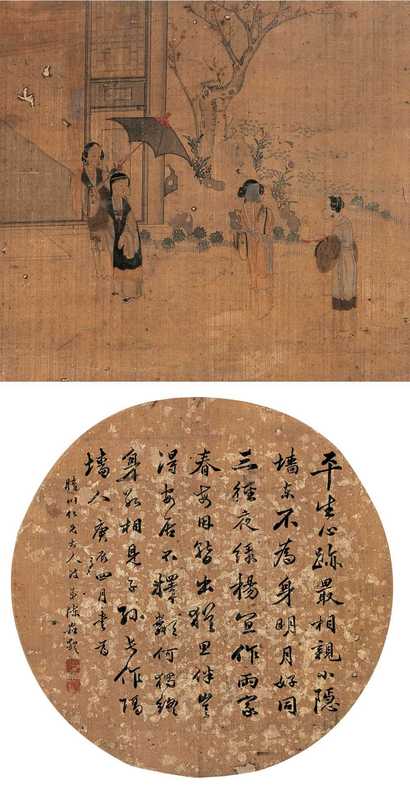 平生心跡最相親小隱
墻東不為身明月好同
三徑夜綠楊宜作兩家
春每因暫出猶思伴豈
得安居不擇鄰何獨終
身數相見子孫長作隔
墻人 庚辰四月書
仁兄大人 弟陳